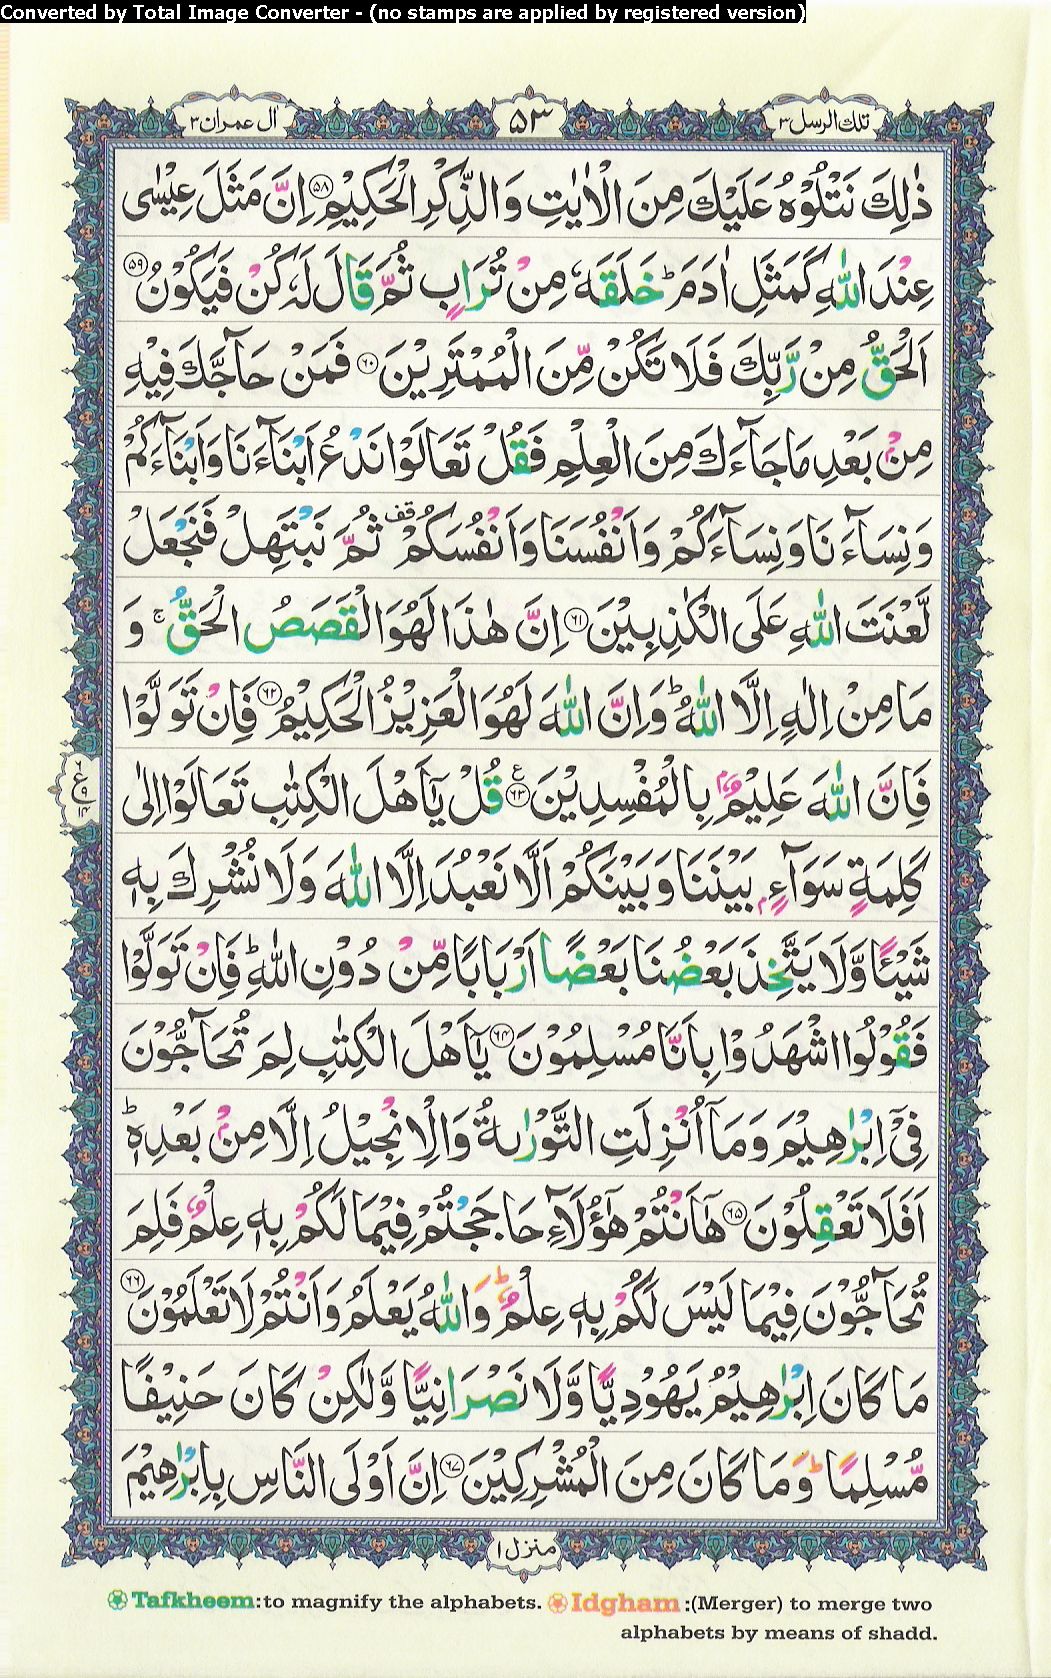 Converted by Total Image Converter - (no stamps are applied by registered version)
تلك الرسل ٣
۵۳
اٰل عمرٰن ٣
ذٰلِكَ نَتْلُوْهُ عَلَيْكَ مِنَ الْاٰيٰتِ وَالذِّكْرِ الْحَكِيْمِ ۵۸ اِنَّ مَثَلَ عِيْسٰى
عِنْدَ اللّٰهِ كَمَثَلِ اٰدَمَ ؕ خَلَقَهٗ مِنْ تُرَابٍ ثُمَّ قَالَ لَهٗ كُنْ فَيَكُوْنُ ۵۹
اَلْحَقُّ مِنْ رَّبِّكَ فَلَا تَكُنْ مِّنَ الْمُمْتَرِيْنَ ۶۰ فَمَنْ حَآجَّكَ فِيْهِ
مِنْۢ بَعْدِ مَا جَآءَكَ مِنَ الْعِلْمِ فَقُلْ تَعَالَوْا نَدْعُ اَبْنَآءَنَا وَاَبْنَآءَكُمْ
وَنِسَآءَنَا وَنِسَآءَكُمْ وَاَنْفُسَنَا وَاَنْفُسَكُمْ قف ثُمَّ نَبْتَهِلْ فَنَجْعَلْ
لَّعْنَتَ اللّٰهِ عَلَى الْكٰذِبِيْنَ ۶۱ اِنَّ هٰذَا لَهُوَ الْقَصَصُ الْحَقُّ ۚ وَ
مَا مِنْ اِلٰهٍ اِلَّا اللّٰهُ ؕ وَاِنَّ اللّٰهَ لَهُوَ الْعَزِيْزُ الْحَكِيْمُ ۶۲ فَاِنْ تَوَلَّوْا
فَاِنَّ اللّٰهَ عَلِيْمٌۢ بِالْمُفْسِدِيْنَ ۶۳ ع قُلْ يٰۤاَهْلَ الْكِتٰبِ تَعَالَوْا اِلٰى
كَلِمَةٍ سَوَآءٍۭ بَيْنَنَا وَبَيْنَكُمْ اَلَّا نَعْبُدَ اِلَّا اللّٰهَ وَلَا نُشْرِكَ بِهٖ
شَيْئًا وَّلَا يَتَّخِذَ بَعْضُنَا بَعْضًا اَرْبَابًا مِّنْ دُوْنِ اللّٰهِ ؕ فَاِنْ تَوَلَّوْا
فَقُوْلُوا اشْهَدُوْا بِاَنَّا مُسْلِمُوْنَ ۶۴ يٰۤاَهْلَ الْكِتٰبِ لِمَ تُحَآجُّوْنَ
فِيْۤ اِبْرٰهِيْمَ وَمَاۤ اُنْزِلَتِ التَّوْرٰىةُ وَالْاِنْجِيْلُ اِلَّا مِنْۢ بَعْدِهٖ ؕ
اَفَلَا تَعْقِلُوْنَ ۶۵ هٰۤاَنْتُمْ هٰٓؤُلَآءِ حَاجَجْتُمْ فِيْمَا لَكُمْ بِهٖ عِلْمٌ فَلِمَ
تُحَآجُّوْنَ فِيْمَا لَيْسَ لَكُمْ بِهٖ عِلْمٌ ؕ وَاللّٰهُ يَعْلَمُ وَاَنْتُمْ لَا تَعْلَمُوْنَ ۶۶
مَا كَانَ اِبْرٰهِيْمُ يَهُوْدِيًّا وَّلَا نَصْرَانِيًّا وَّلٰكِنْ كَانَ حَنِيْفًا
مُّسْلِمًا ؕ وَمَا كَانَ مِنَ الْمُشْرِكِيْنَ ۶۷ اِنَّ اَوْلَى النَّاسِ بِاِبْرٰهِيْمَ
۶ ع ۹ ۱۴
منزل ١
Tafkheem:to magnify the alphabets. Idgham :(Merger) to merge two
alphabets by means of shadd.